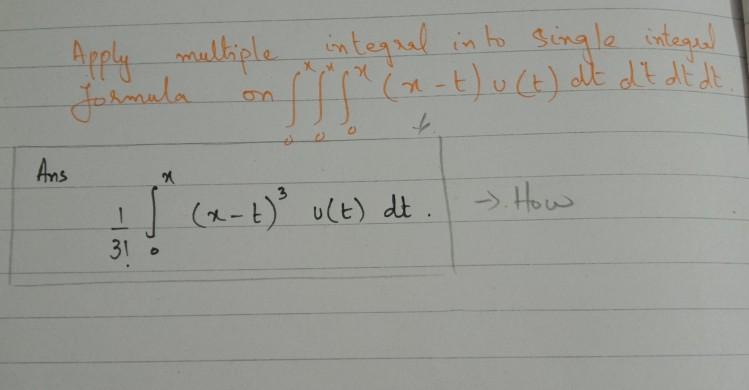 Apply multiple integral in to single integral
formula on ∫₀ˣ ∫₀ˣ ∫₀ˣ (x-t) u(t) dt dt dt dt.
Ans
1/3! ∫₀ˣ (x-t)³ u(t) dt. → How